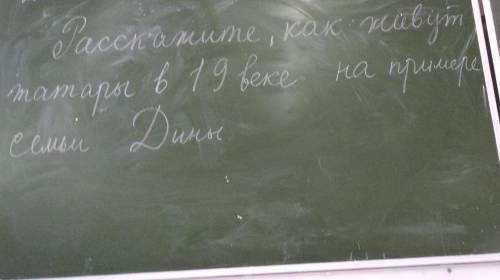 Расскажите, как живут
татары в 19 веке на примере
семьи Дины